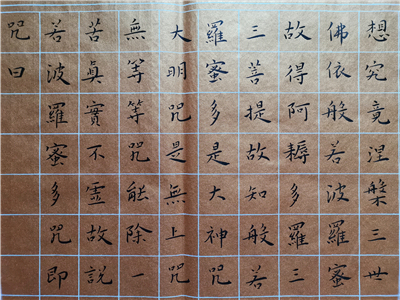 想究竟涅槃三世
佛依般若波羅蜜
故得阿耨多羅三
三菩提故知般若
羅蜜多是大神咒
大明咒是無上咒
無等等咒能除一
苦真實不虛故說
若波羅蜜多咒即
咒曰